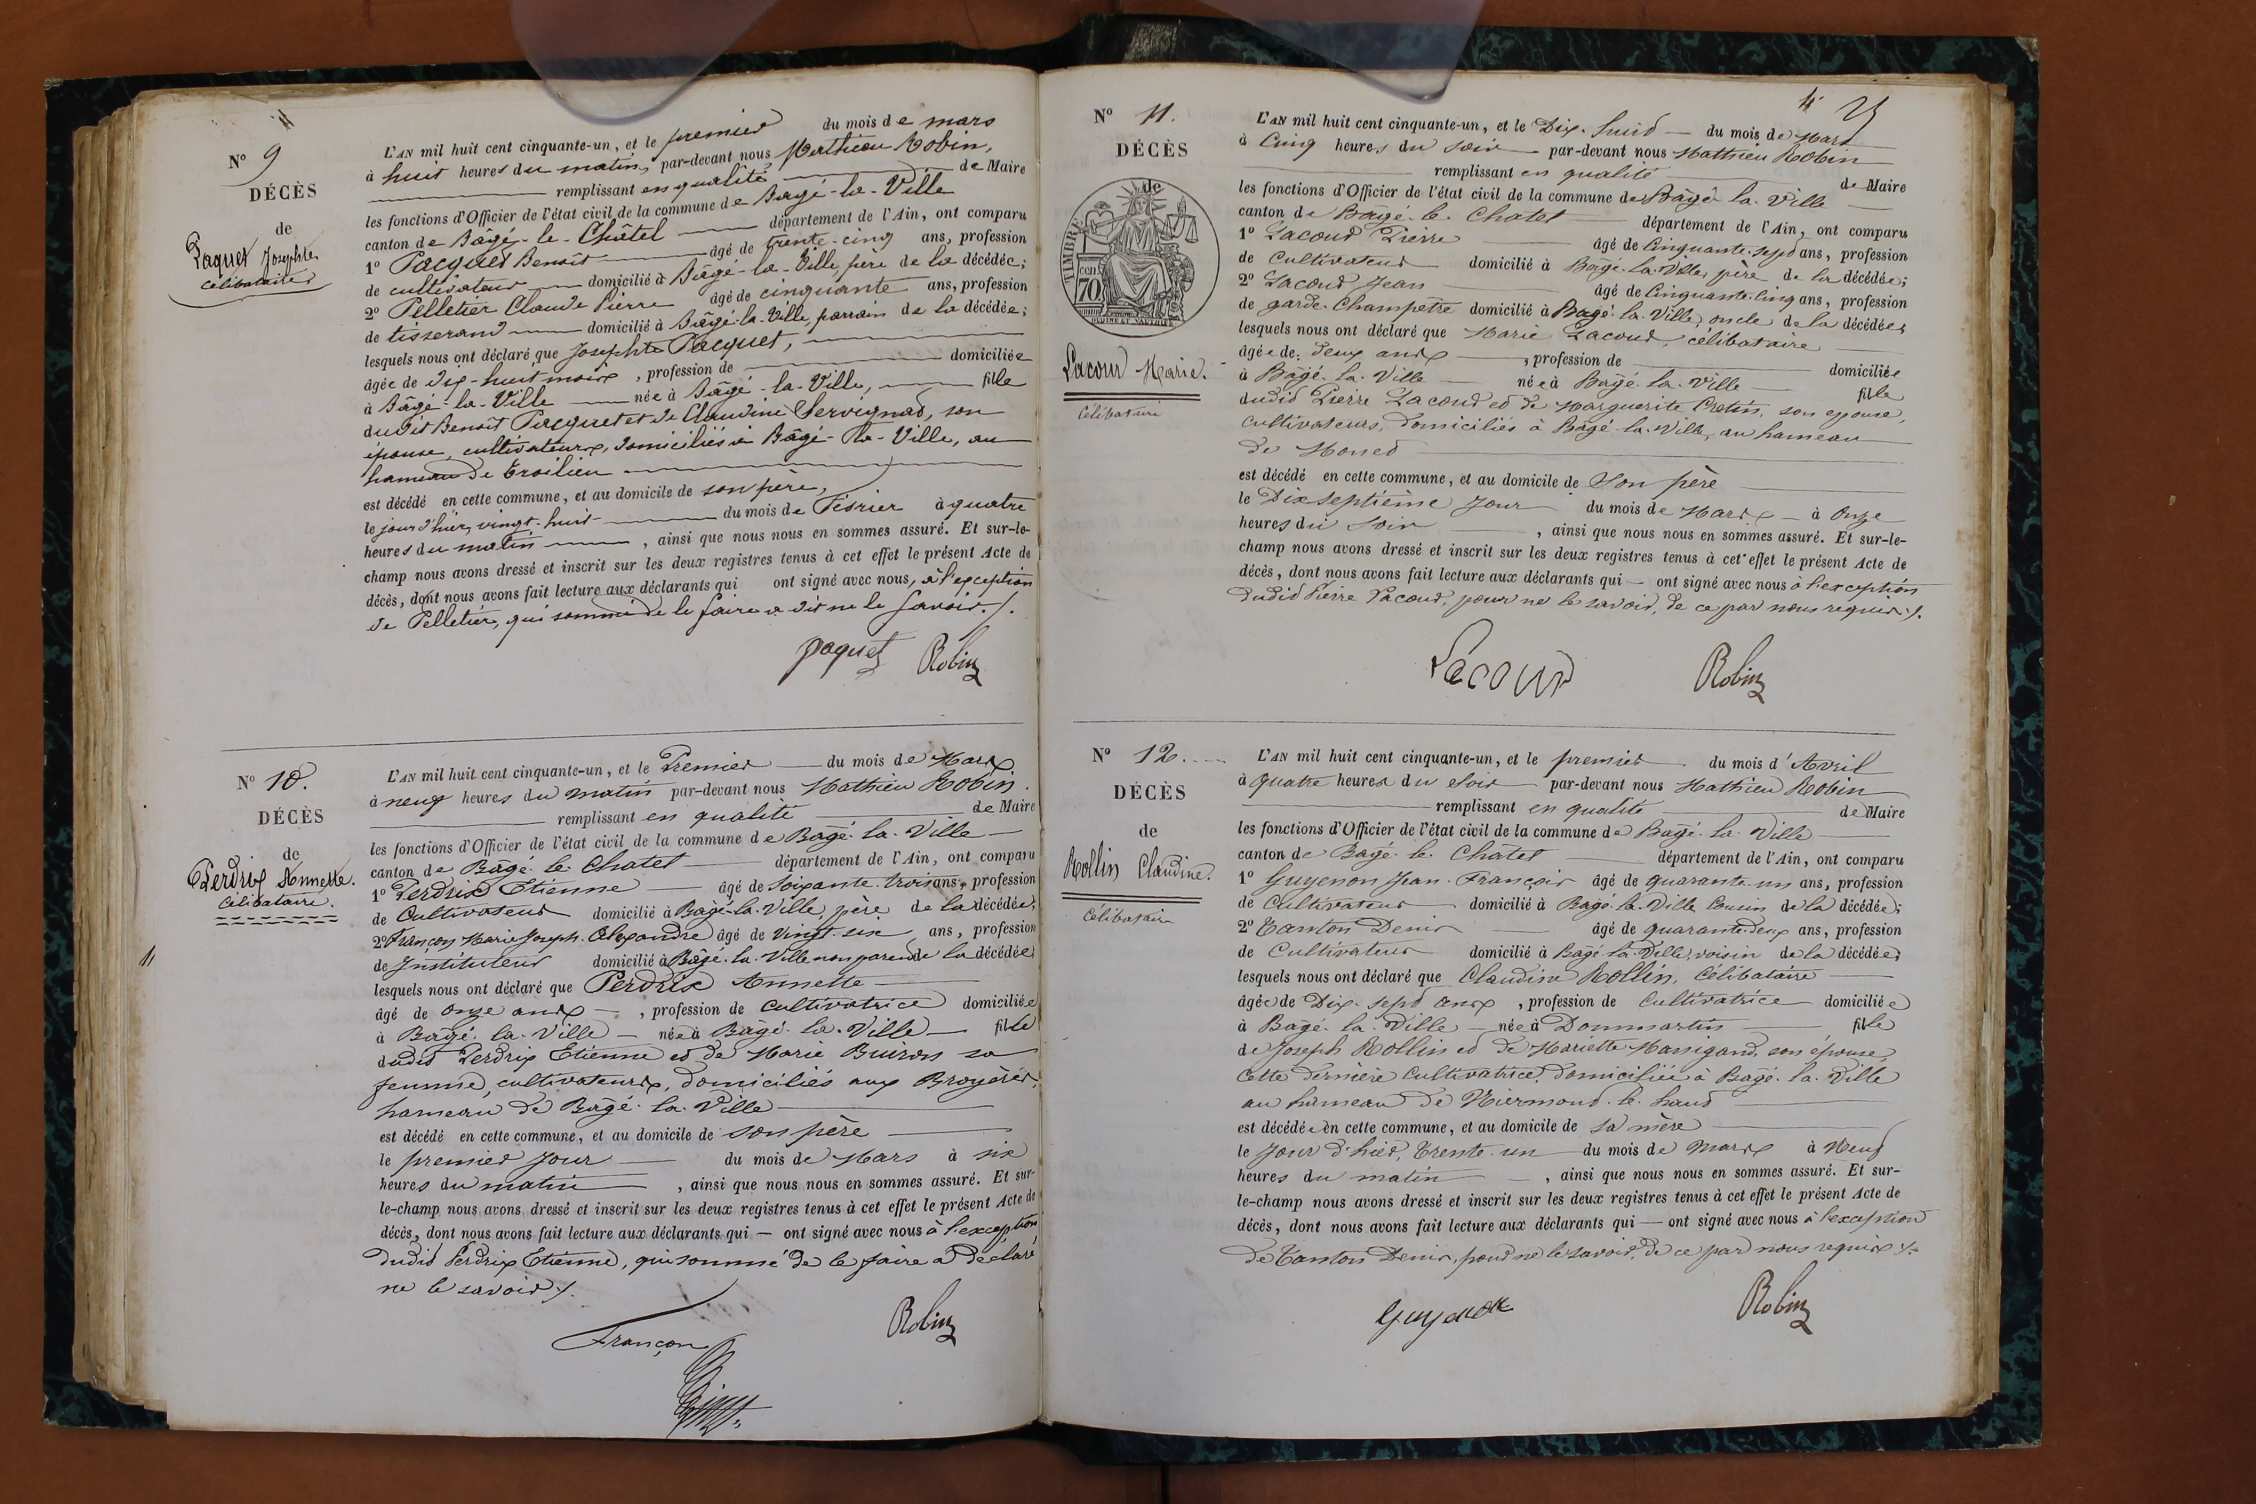 N° 9
DÉCÈS
de
Paquet Josephte
célibataire
L'AN mil huit cent cinquante-un, et le premier du mois de mars
à huit heures du matin, par-devant nous Mathieu Robin,
remplissant en qualité de Maire
les fonctions d'Officier de l'état civil de la commune de Bâgé-la-Ville
canton de Bâgé-le-Châtel département de l'Ain, ont comparu
1° Pacquet Benoît âgé de trente-cinq ans, profession
de cultivateur domicilié à Bâgé-la-Ville, père de la décédée;
2° Pelletier Claude Pierre âgé de cinquante ans, profession
de tisserand domicilié à Bâgé-la-Ville, parrain de la décédée;
lesquels nous ont déclaré que Josephte Pacquet,
âgée de dix-huit mois, profession de domiciliée
à Bâgé-la-Ville née à Bâgé-la-Ville, fille
dudit Benoît Pacquet et de Claudine Servignat, son
épouse, cultivateurs, domiciliés à Bâgé-la-Ville, au
hameau de
est décédé en cette commune, et au domicile de son père,
le jour d'hier, vingt-huit du mois de Février à quatre
heures du matin, ainsi que nous nous en sommes assuré. Et sur-le-
champ nous avons dressé et inscrit sur les deux registres tenus à cet effet le présent Acte de
décès, dont nous avons fait lecture aux déclarants qui ont signé avec nous, à l'exception
de Pelletier, qui sommé de le faire a dit ne le savoir./.
paquet Robin
N° 10.
DÉCÈS
de
Perdrix Annette.
célibataire.
L'AN mil huit cent cinquante-un, et le Premier du mois de Mars
à neuf heures du matin par-devant nous Mathieu Robin.
remplissant en qualité de Maire
les fonctions d'Officier de l'état civil de la commune de Bâgé-la-Ville
canton de Bâgé-le-Chatel département de l'Ain, ont comparu
1° Perdrix Etienne âgé de soixante-trois ans, profession
de Cultivateur domicilié à Bâgé-la-Ville, père de la décédée;
2° Françon Marie Joseph Alexandre âgé de vingt-six ans, profession
de Instituteur domicilié à Bâgé-la-Ville non parent de la décédée;
lesquels nous ont déclaré que Perdrix Annette
âgé de onze ans, profession de cultivatrice domiciliée
à Bâgé-la-Ville née à Bâgé-la-Ville fille
dudit Perdrix Etienne et de Marie Buiron sa
femme, cultivateurs, domiciliés aux Broyères,
hameau de Bâgé-la-Ville
est décédé en cette commune, et au domicile de son père
le premier jour du mois de Mars à six
heures du matin, ainsi que nous nous en sommes assuré. Et sur-
le-champ nous avons dressé et inscrit sur les deux registres tenus à cet effet le présent Acte de
décès, dont nous avons fait lecture aux déclarants qui — ont signé avec nous à l'exception
dudit Perdrix Etienne, qui sommé de le faire a déclaré
ne le savoir./.
Françon
Robin
N° 11.
DÉCÈS
de
TIMBRE
70
Lacour Marie.
célibataire
L'AN mil huit cent cinquante-un, et le Dix-huit du mois de Mars
à Cinq heures du soir par-devant nous Mathieu Robin
remplissant en qualité de Maire
les fonctions d'Officier de l'état civil de la commune de Bâgé-la-Ville
canton de Bâgé-le-Chatel département de l'Ain, ont comparu
1° Lacour Pierre âgé de Cinquante-sept ans, profession
de Cultivateur domicilié à Bâgé-la-Ville, père de la décédée;
2° Lacour Jean âgé de Cinquante-Cinq ans, profession
de garde-champêtre domicilié à Bâgé-la-Ville, oncle de la décédée;
lesquels nous ont déclaré que Marie Lacour, célibataire
âgée de: deux ans, profession de domiciliée
à Bâgé-la-Ville née à Bâgé-la-Ville fille
dudit Pierre Lacour et de Marguerite Cretin, son épouse,
cultivateurs, domiciliés à Bâgé-la-Ville, au hameau
de
est décédé en cette commune, et au domicile de son père
le Dix septième jour du mois de Mars à Onze
heures du soir, ainsi que nous nous en sommes assuré. Et sur-le-
champ nous avons dressé et inscrit sur les deux registres tenus à cet effet le présent Acte de
décès, dont nous avons fait lecture aux déclarants qui — ont signé avec nous à l'exception
dudit Pierre Lacour, pour ne le savoir, de ce par nous requis./.
Lacour Robin
N° 12.
DÉCÈS
de
Rollin Claudine.
célibataire
L'AN mil huit cent cinquante-un, et le premier du mois d'Avril
à quatre heures du soir par-devant nous Mathieu Robin
remplissant en qualité de Maire
les fonctions d'Officier de l'état civil de la commune de Bâgé-la-Ville
canton de Bâgé-le-Châtel département de l'Ain, ont comparu
1° Guyenon Jean-François âgé de quarante-un ans, profession
de Cultivateur domicilié à Bâgé-la-Ville Cousin de la décédée;
2° Tanton Denis âgé de quarante-deux ans, profession
de Cultivateur domicilié à Bâgé-la-Ville, voisin de la décédée;
lesquels nous ont déclaré que Claudine Rollin, Célibataire
âgée de Dix-sept ans, profession de Cultivatrice domiciliée
à Bâgé-la-Ville née à Dommartin fille
de Joseph Rollin et de Mariette Massigand son épouse,
cette dernière Cultivatrice, domiciliée à Bâgé-la-Ville
au hameau de
est décédée en cette commune, et au domicile de sa mère
le jour d'hier, trente-un du mois de mars à Neuf
heures du matin, ainsi que nous nous en sommes assuré. Et sur-
le-champ nous avons dressé et inscrit sur les deux registres tenus à cet effet le présent Acte de
décès, dont nous avons fait lecture aux déclarants qui — ont signé avec nous à l'exception
de Tanton Denis, pour ne le savoir, de ce par nous requis./.
Guyenon Robin